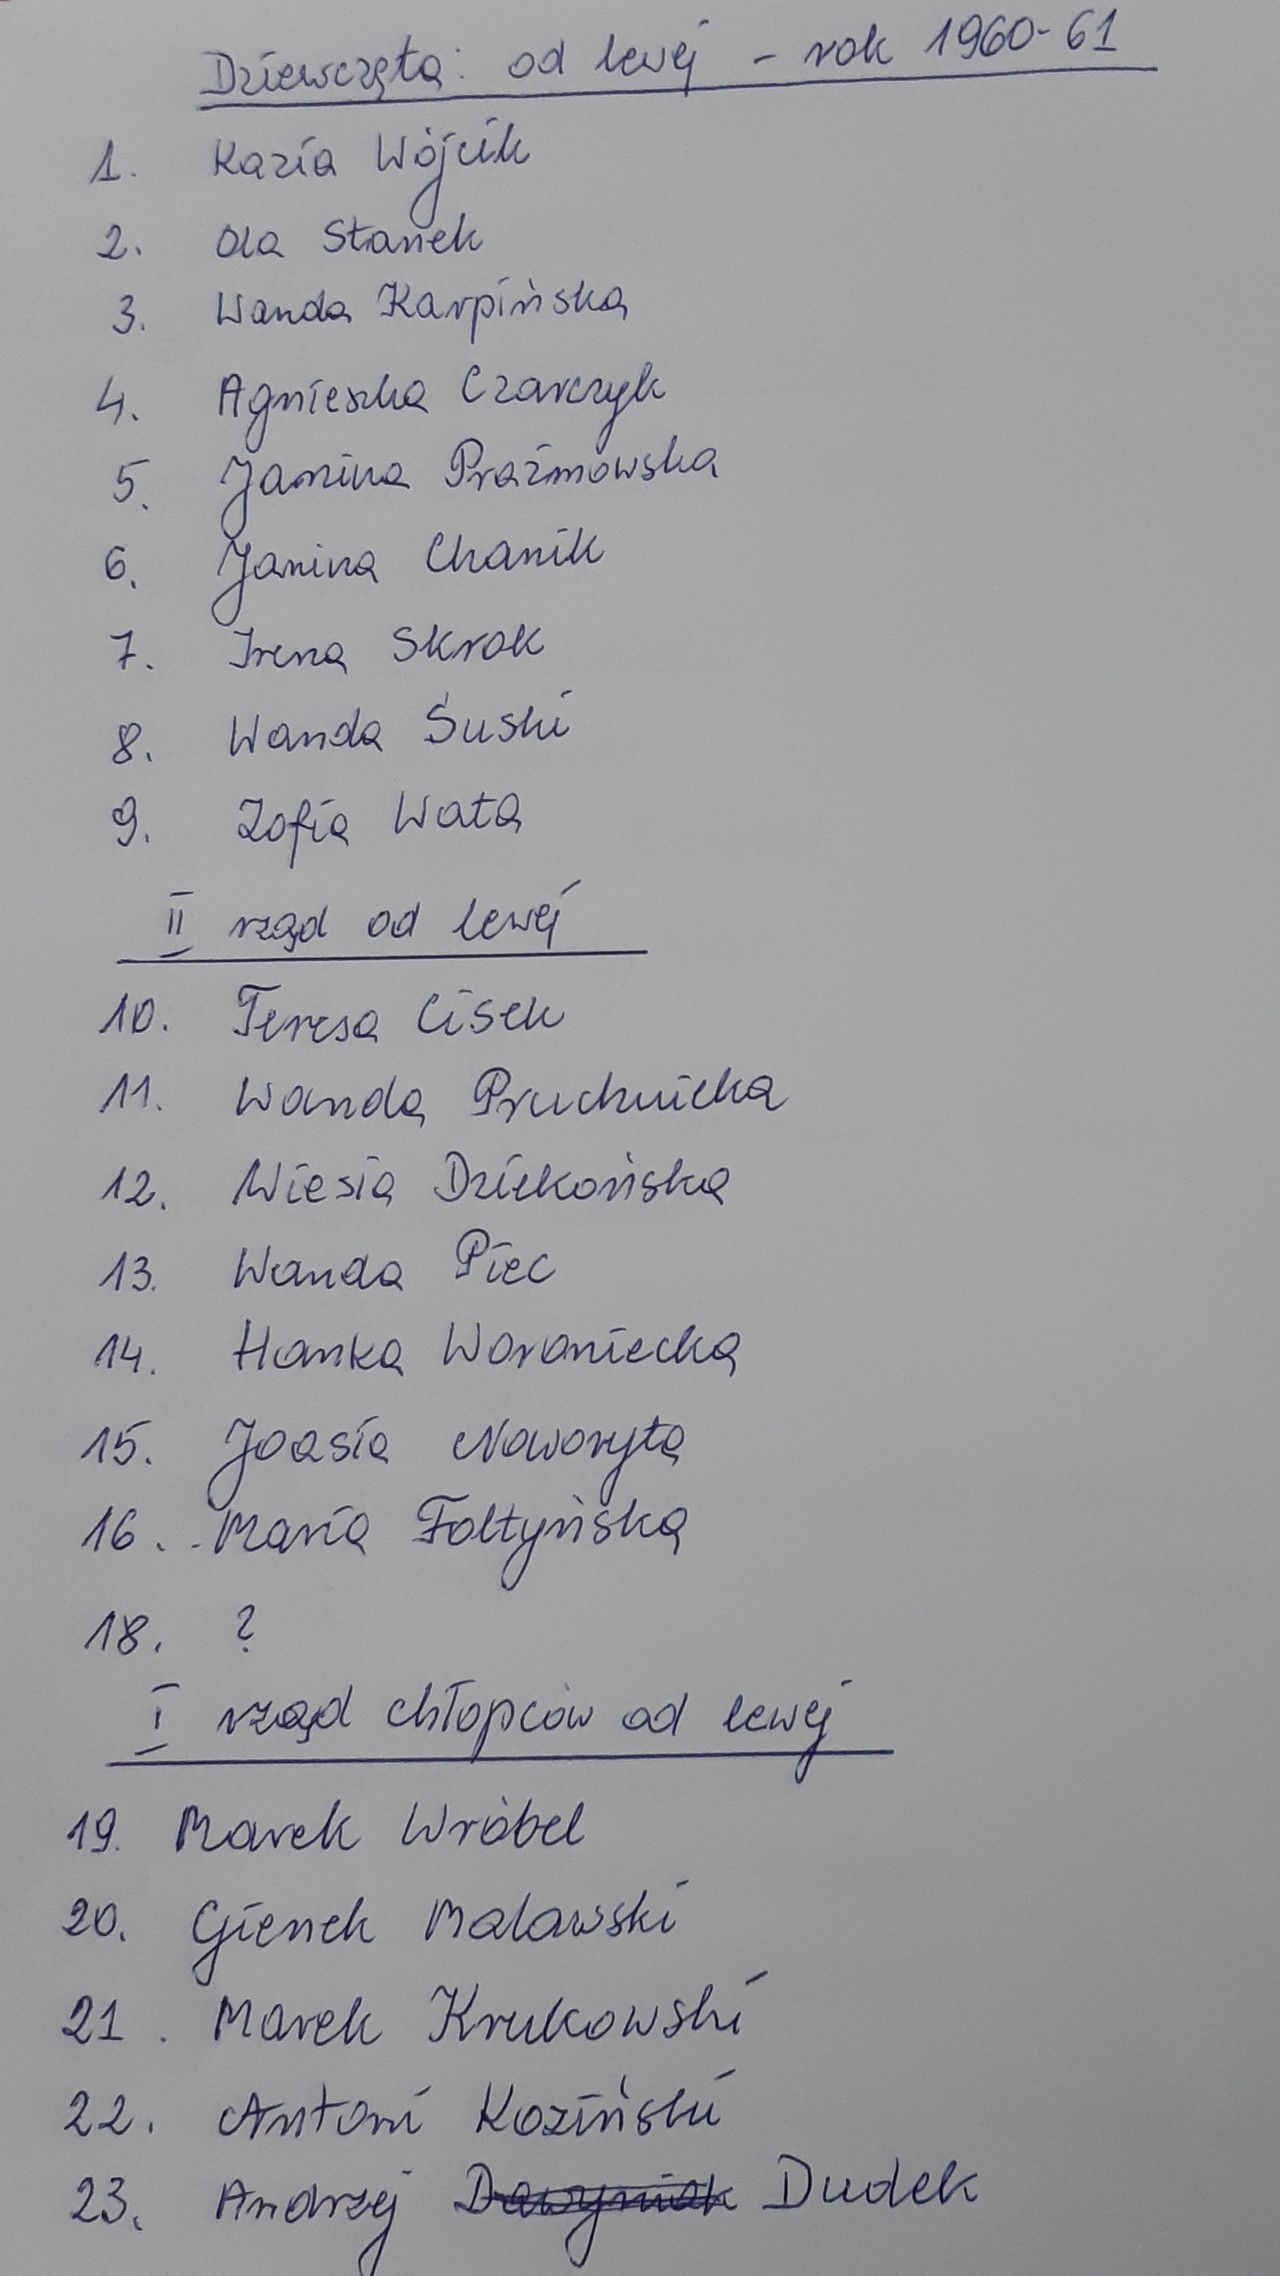 Dziewczęta: od lewej - rok 1960-61
1. Kazia Wójcik
2. Ola Stanek
3. Wanda Karpińska
4. Agnieszka Czarczyk
5. Janina Praźmowska
6. Janina Chanik
7. Irena Skrok
8. Wanda Śuski
9. Zofia Wata
II rząd od lewej
10. Teresa Cisek
11. Wanda Pruchnicka
12. Wiesia Dziekońska
13. Wanda Piec
14. Hanka Woroniecka
15. Joasia Noworyta
16. Maria Fołtyńska
18. ?
I rząd chłopców od lewej
19. Marek Wróbel
20. Gienek Malawski
21. Marek Krukowski
22. Antoni Koziński
23. Andrzej Dudek